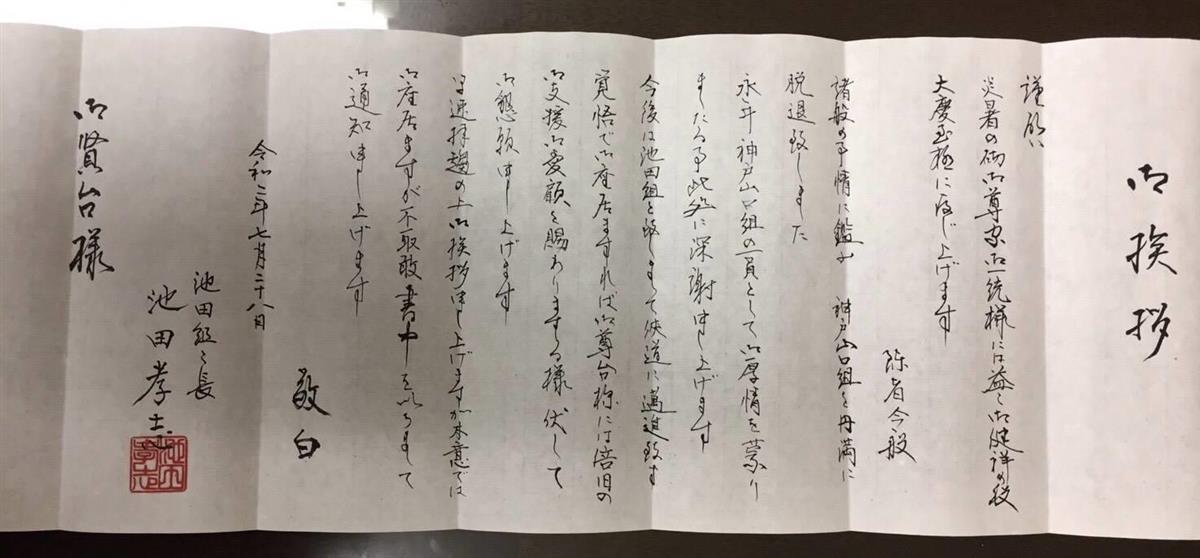 御挨拶
謹啓
炎暑の砌御尊家御一統様には益々御健祥の段
大慶至極に存じ上げます
陳者今般
諸般の事情に鑑み 神戸山口組を円満に
脱退致しました
永年神戸山口組の一員として御厚情を蒙り
ましたる事此処に深謝申し上げます
今後は池田組と致しまして侠道に邁進致す
覚悟で御座居ますれば御尊台様には倍旧の
御支援御愛顧を賜わりまする様伏して
御懇願申し上げます
早速拝趨の上御挨拶申し上げますが本意では
御座居ますが不取敢書中を以ちまして
御通知申し上げます
敬白
令和二年七月二十八日
池田組々長
池田孝志
御賢台様